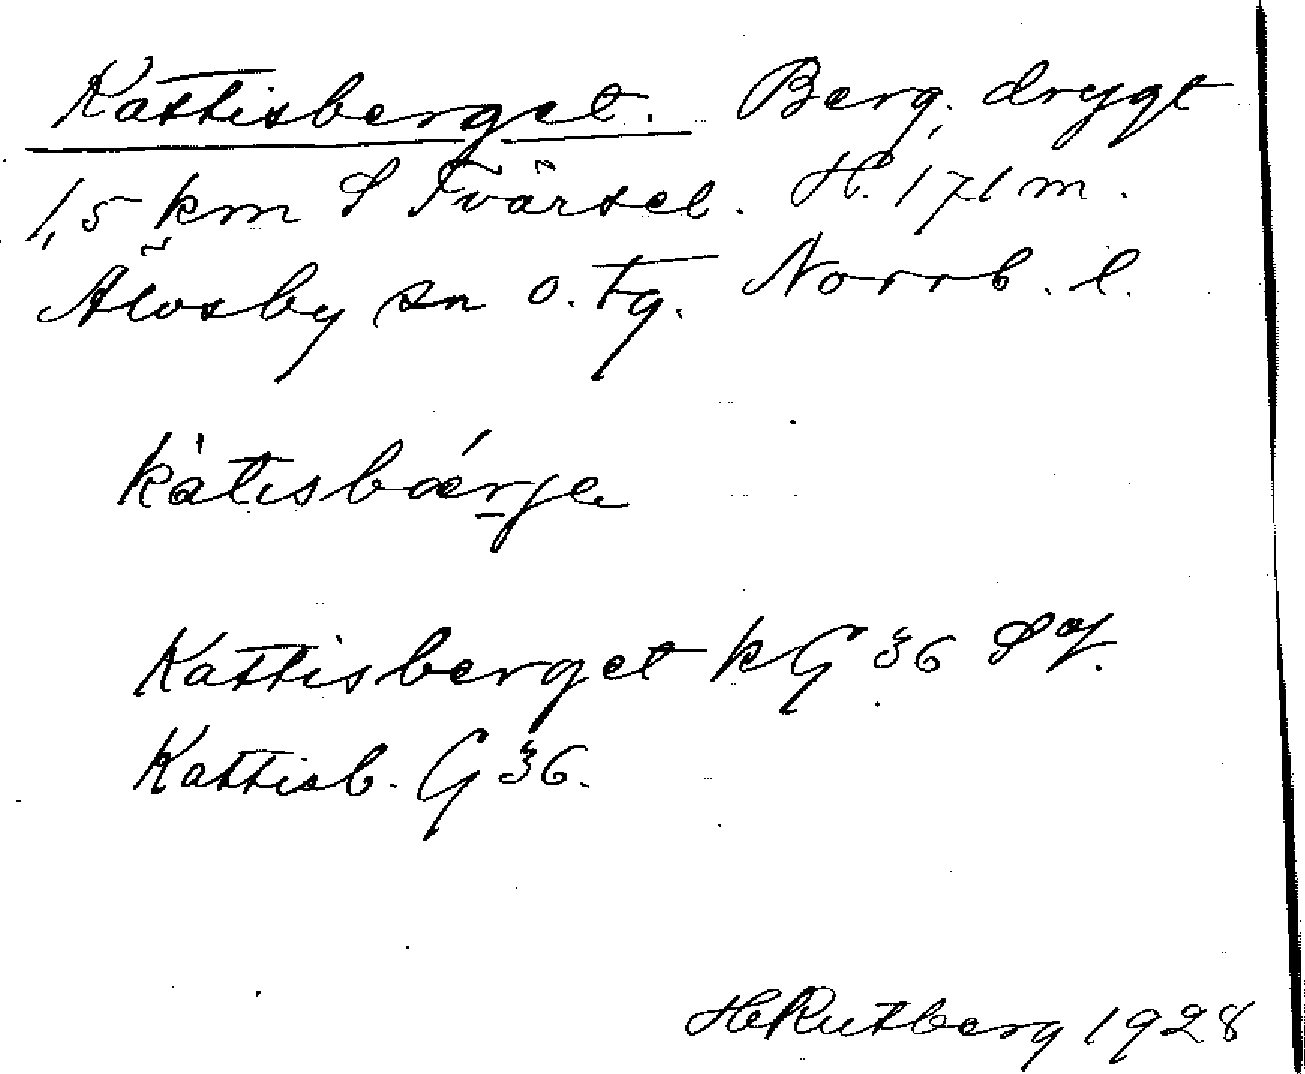 Kattisberget. Berg, drygt
1,5 km S Tvärsel. H. 171 m.
Älvsby sn o. tg. Norrb. l.
kàtisbárje
Kattisberget kG 36 SO/.
Kattisb. G 36.
H Rutberg 1928